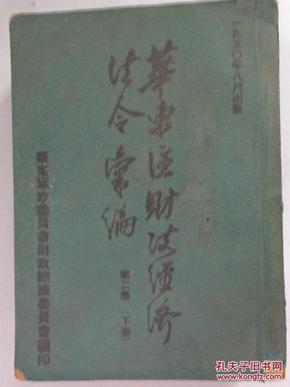 一九五〇年八月出版
華東區財政經濟
法令彙編
第二集（下冊）
華東軍政委員會財政經濟委員會編印
孔夫子旧书网